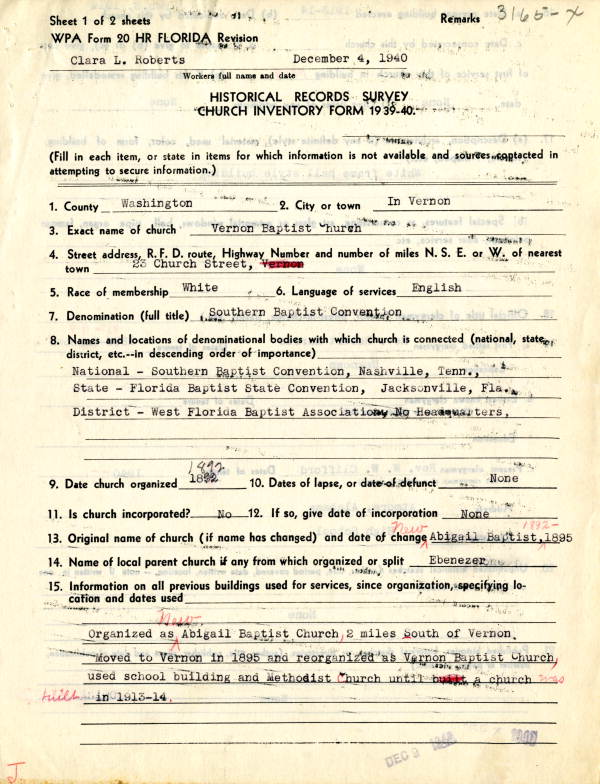 Sheet 1 of 2 sheets
Remarks 3165-X
WPA Form 20 HR FLORIDA Revision
Clara L. Roberts December 4, 1940
Workers full name and date
HISTORICAL RECORDS SURVEY
CHURCH INVENTORY FORM 1939-40.
(Fill in each item, or state in items for which information is not available and sources contacted in
attempting to secure information.)
1. County Washington 2. City or town In Vernon
3. Exact name of church Vernon Baptist Church
4. Street address, R. F. D. route, Highway Number and number of miles N. S. E. or W. of nearest
town 23 Church Street, Vernon
5. Race of membership White 6. Language of services English
7. Denomination (full title) Southern Baptist Convention
8. Names and locations of denominational bodies with which church is connected (national, state,
district, etc.--in descending order of importance)
National - Southern Baptist Convention, Nashville, Tenn.,
State - Florida Baptist State Convention, Jacksonville, Fla.
District - West Florida Baptist Association, No Headquarters.
1892
9. Date church organized 1892 10. Dates of lapse, or date of defunct None
11. Is church incorporated? No 12. If so, give date of incorporation None
New 1892-
13. Original name of church (if name has changed) and date of change Abigail Baptist, 1895
14. Name of local parent church if any from which organized or split Ebenezer
15. Information on all previous buildings used for services, since organization, specifying lo-
cation and dates used
New
Organized as Abigail Baptist Church, 2 miles South of Vernon.
Moved to Vernon in 1895 and reorganized as Vernon Baptist Church,
used school building and Methodist Church until built a church was
built in 1913-14.
DEC 9
J